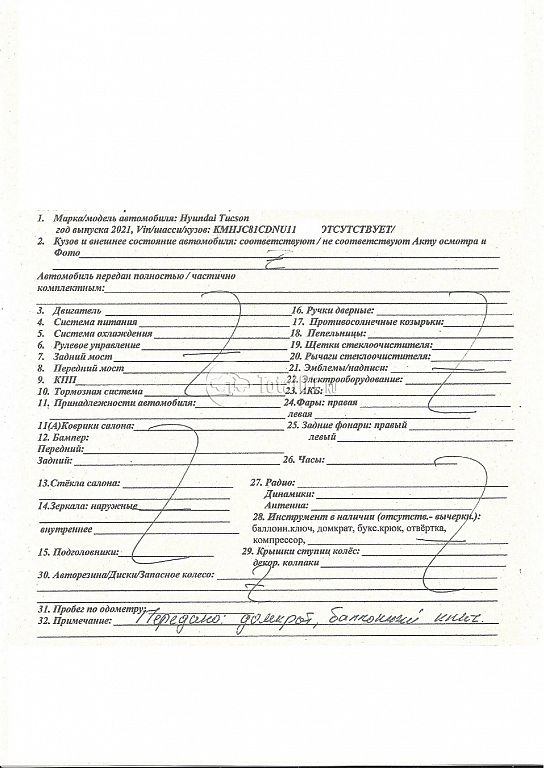 1. Марка/модель автомобиля: Hyundai Tucson
год выпуска 2021, Vin/шасси/кузов: KMHJC81CDNU11 ЭТСУТСТВУЕТ/
2. Кузов и внешнее состояние автомобиля: соответствуют / не соответствуют Акту осмотра и
Фото
Автомобиль передан полностью / частично
комплектным:
3. Двигатель 16. Ручки дверные:
4. Система питания 17. Противосолнечные козырьки:
5. Система охлаждения 18. Пепельницы:
6. Рулевое управление 19. Щетки стеклоочистителя:
7. Задний мост 20. Рычаги стеклоочистителя:
8. Передний мост 21. Эмблемы/надписи:
9. КПП 22. Электрооборудование:
10. Тормозная система 23. АКБ:
11. Принадлежности автомобиля: 24.Фары: правая
левая
11(А)Коврики салона: 25. Задние фонари: правый
12. Бампер: левый
Передний:
Задний: 26. Часы:
13.Стёкла салона: 27. Радио:
Динамики:
14.Зеркала: наружные Антенна:
28. Инструмент в наличии (отсутств.- вычеркн.):
внутреннее баллонн.ключ, домкрат, букс.крюк, отвёртка,
компрессор,
15. Подголовники: 29. Крышки ступиц колёс:
декор. колпаки
30. Авторезина/Диски/Запасное колесо:
31. Пробег по одометру:
32. Примечание: Передано: домкрат, баллонный ключ.